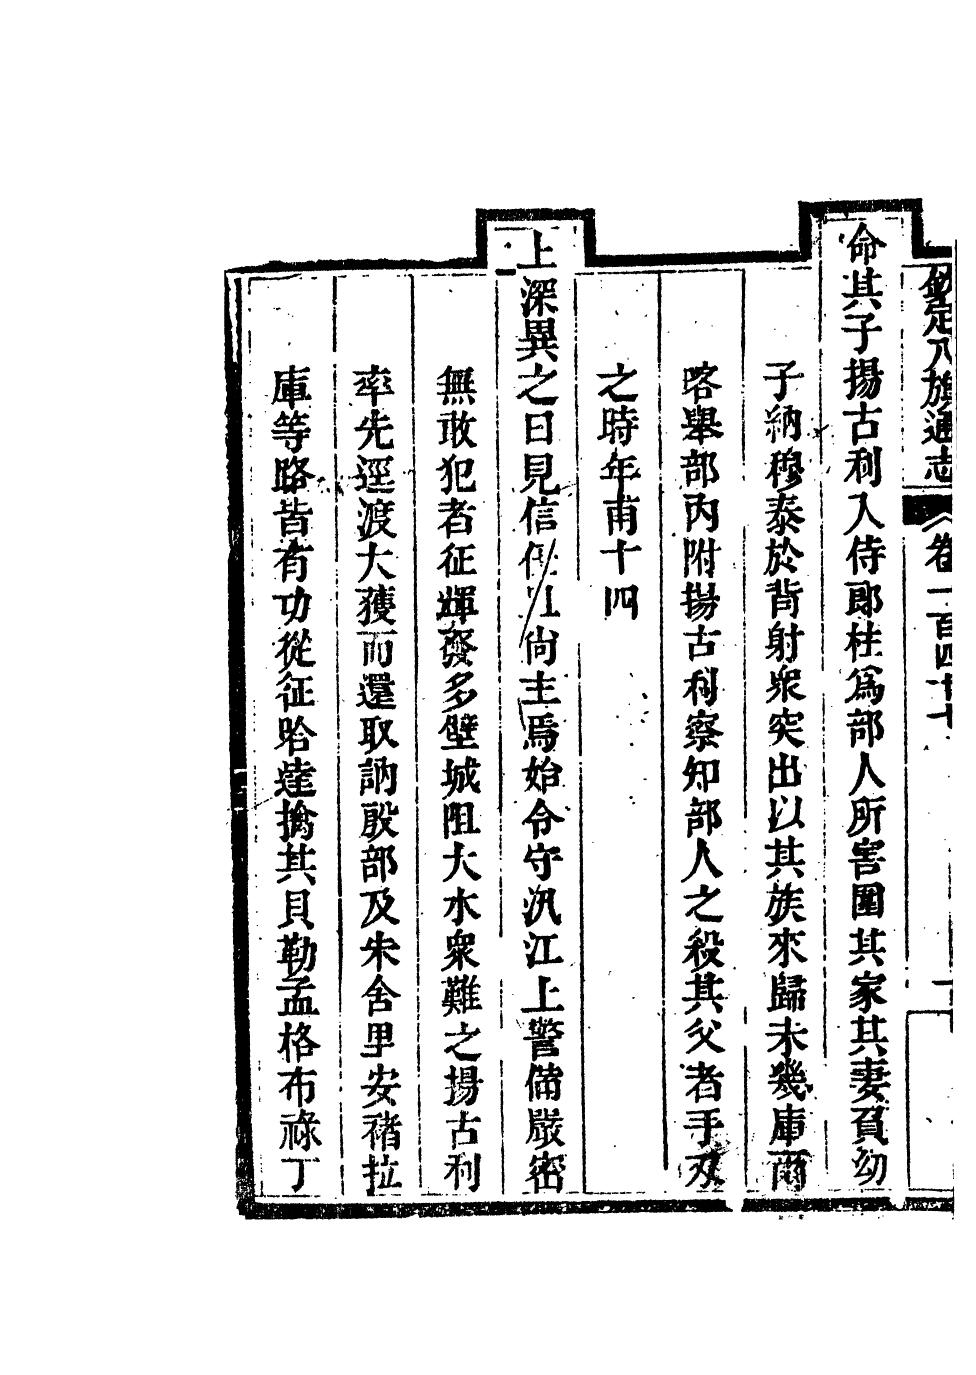 欽定八旗通志 卷一百四十
命其子揚古利入侍郎柱爲部人所害圍其家其妻負幼
子納穆泰於背射衆突出以其族來歸未幾庫爾
喀舉部内附揚古利察知部人之殺其父者手刃
之時年甫十四
上深異之日見信尚主焉始令守汛江上警備嚴密
無敢犯者征輝發多壁城阻大水衆難之揚古利
率先逕渡大獲而還取訥殷部及朱舍里安褚拉
庫等路皆有功從征哈達擒其貝勒孟格布祿丁